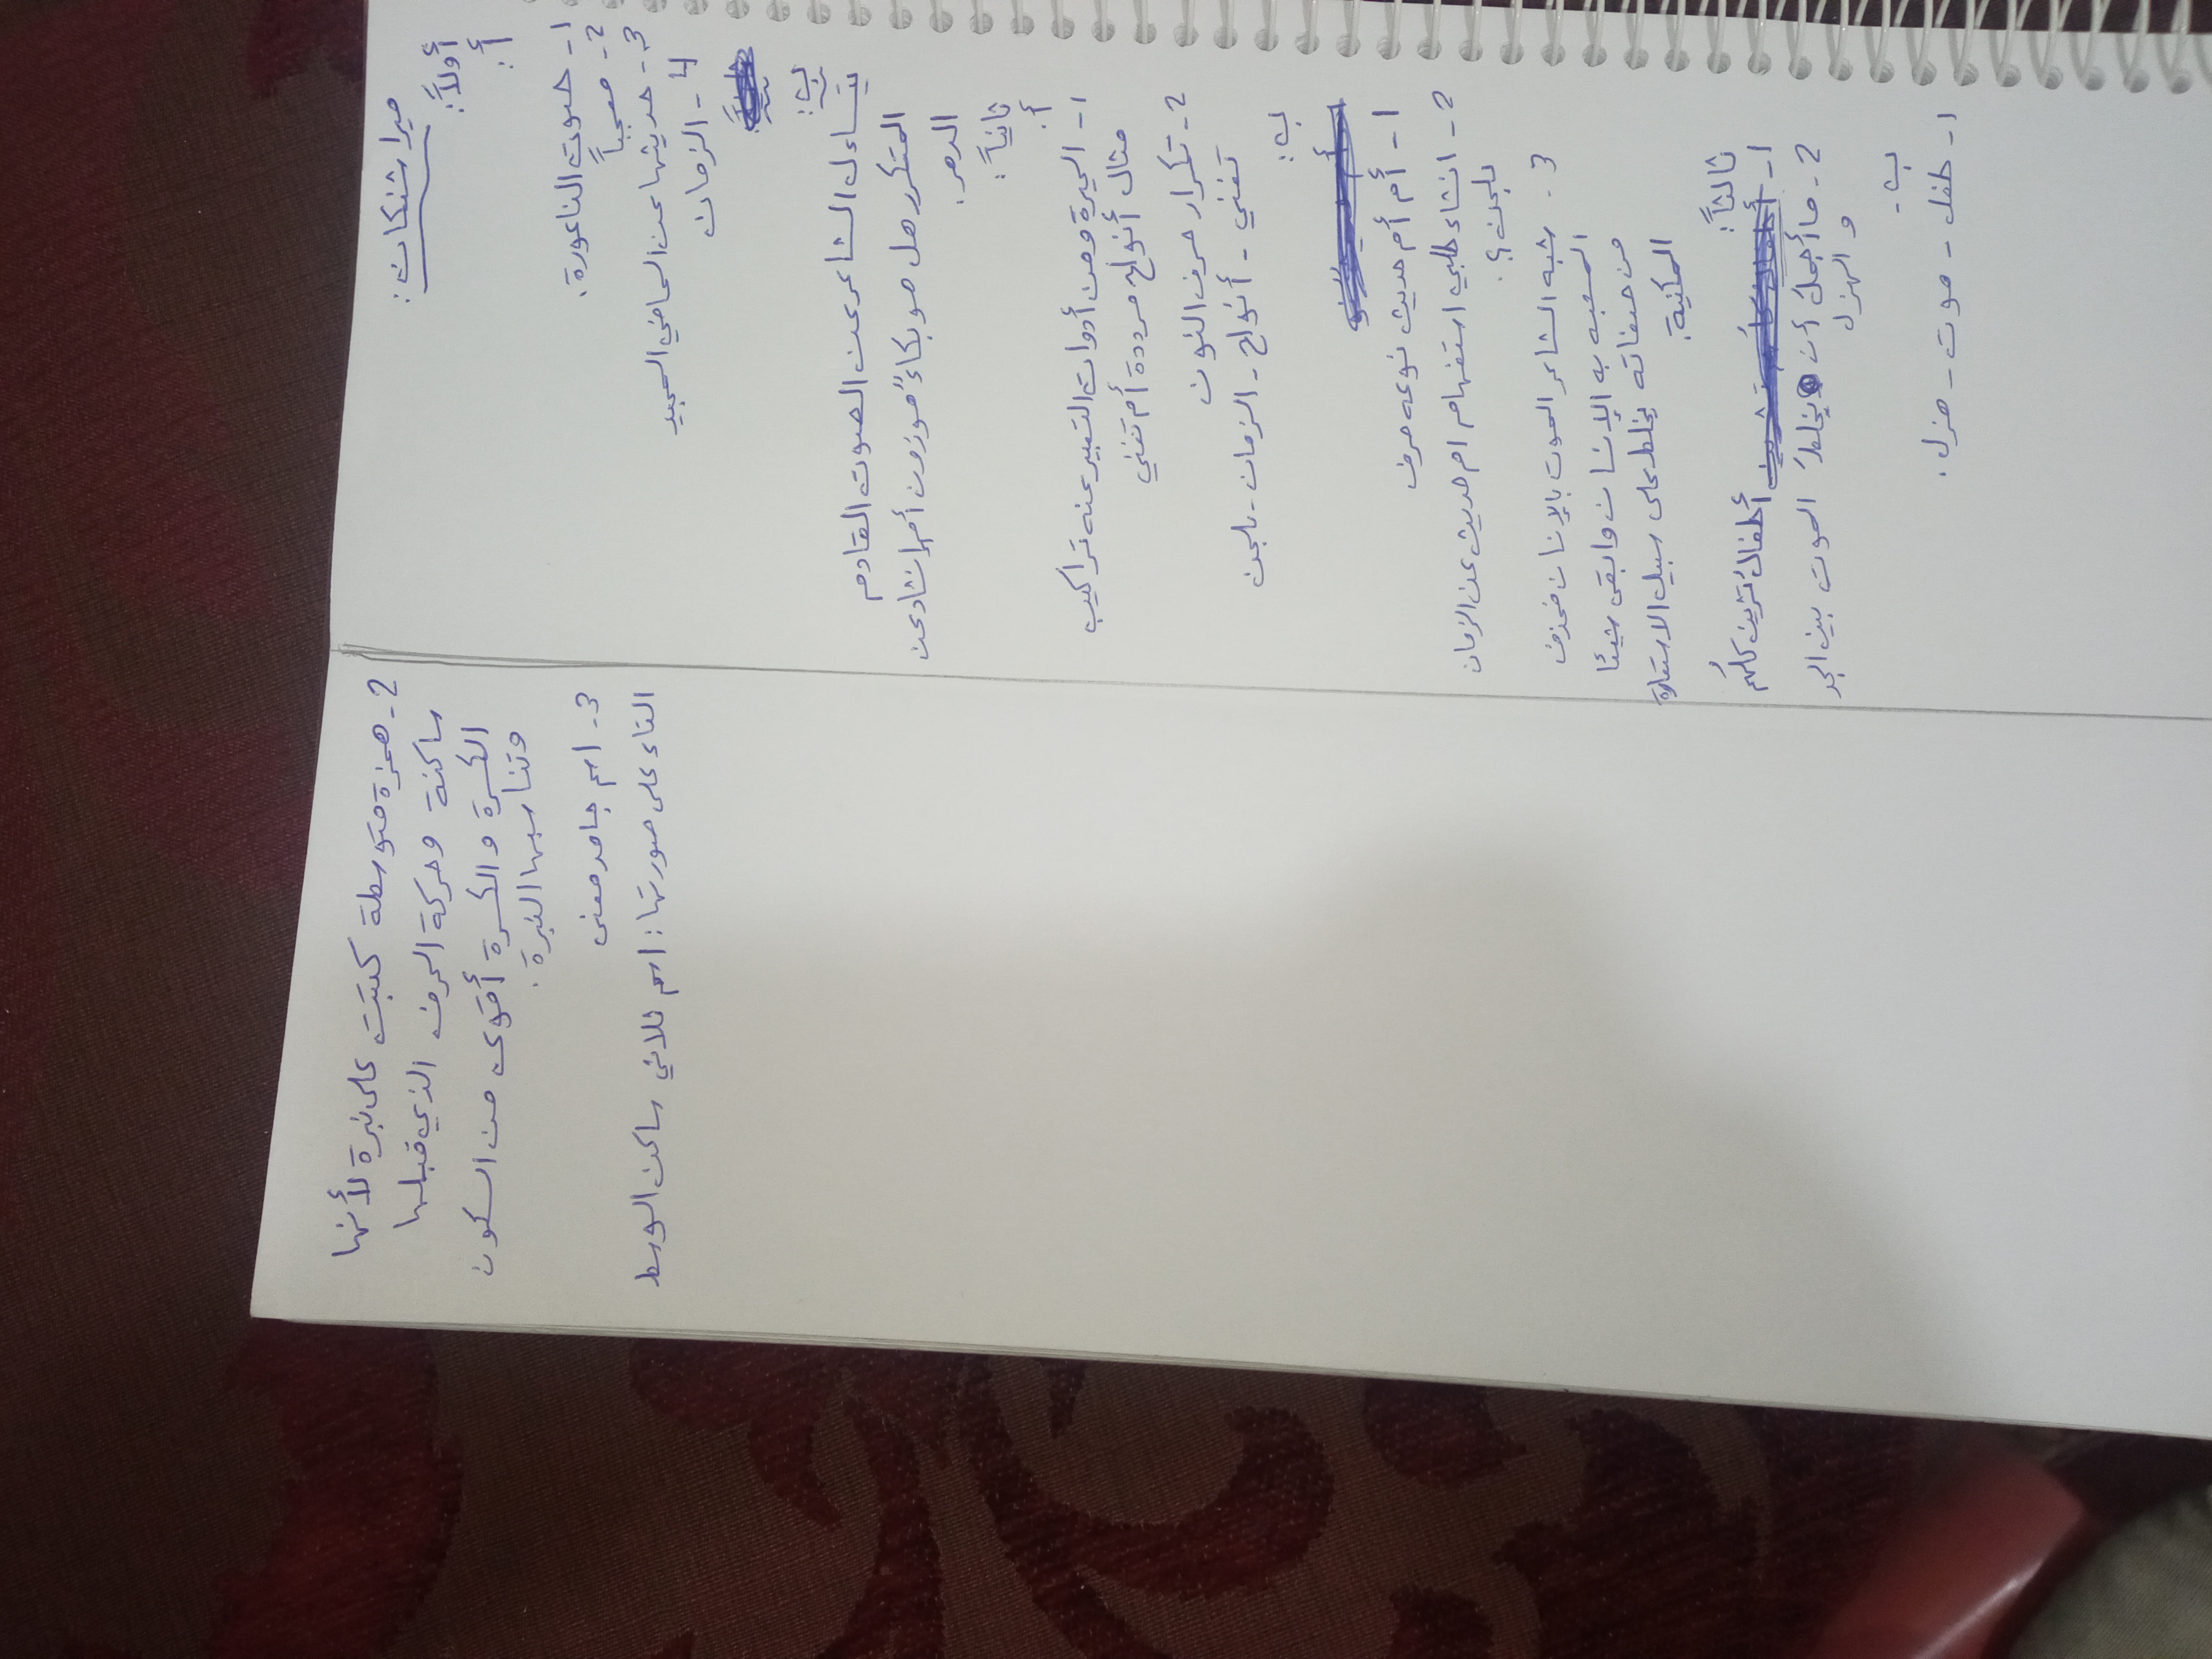 ميرا شنكان:
أولاً:
أ:
1- صوت الناعورة.
2- معجباً
3- حديثها عن الماضي المجيد
4- الزمان
ب:
يتساءل الشاعر عن الصوت القادم
المتكرر هل هو بكاءٌ موزون أم إنشاد عن
الدهر.
ثانياً:
أ.
1- الحيرة ومن أدوات التعبير عنه تراكيب
مثال أنواح مرددة أم تغني
2- تكرار حرف النون
تغني - أنواح - الزمان - بلجن
ب:
1- أم أم حديث نوعه حرف
2- انشاء طلبي استفهام ام حديث عن الزمان
بلجن؟.
3- شبه الشاعر الموت بالإنسان فحذف
المشبه به الإنسان وابقى شيئا
من صفاته يخلط على سبيل الاستعارة
المكنية.
ثالثاً:
1- أطفالُ تشرين كلهُم
2- ما أجملَ أن يخلطَ الموت بين الجد
و الهزل
ب-
1- طفل - موت - هزل.
2- همزة متوسطة كتبت على نبرة لأنها
ساكنة وحركة الحرف الذي قبلها
الكسرة والكسرة أقوى من السكون
وتناسبها النبرة.
3- اسم جامد معنى
التاء على صورتها: اسم ثلاثي ساكن الوسط